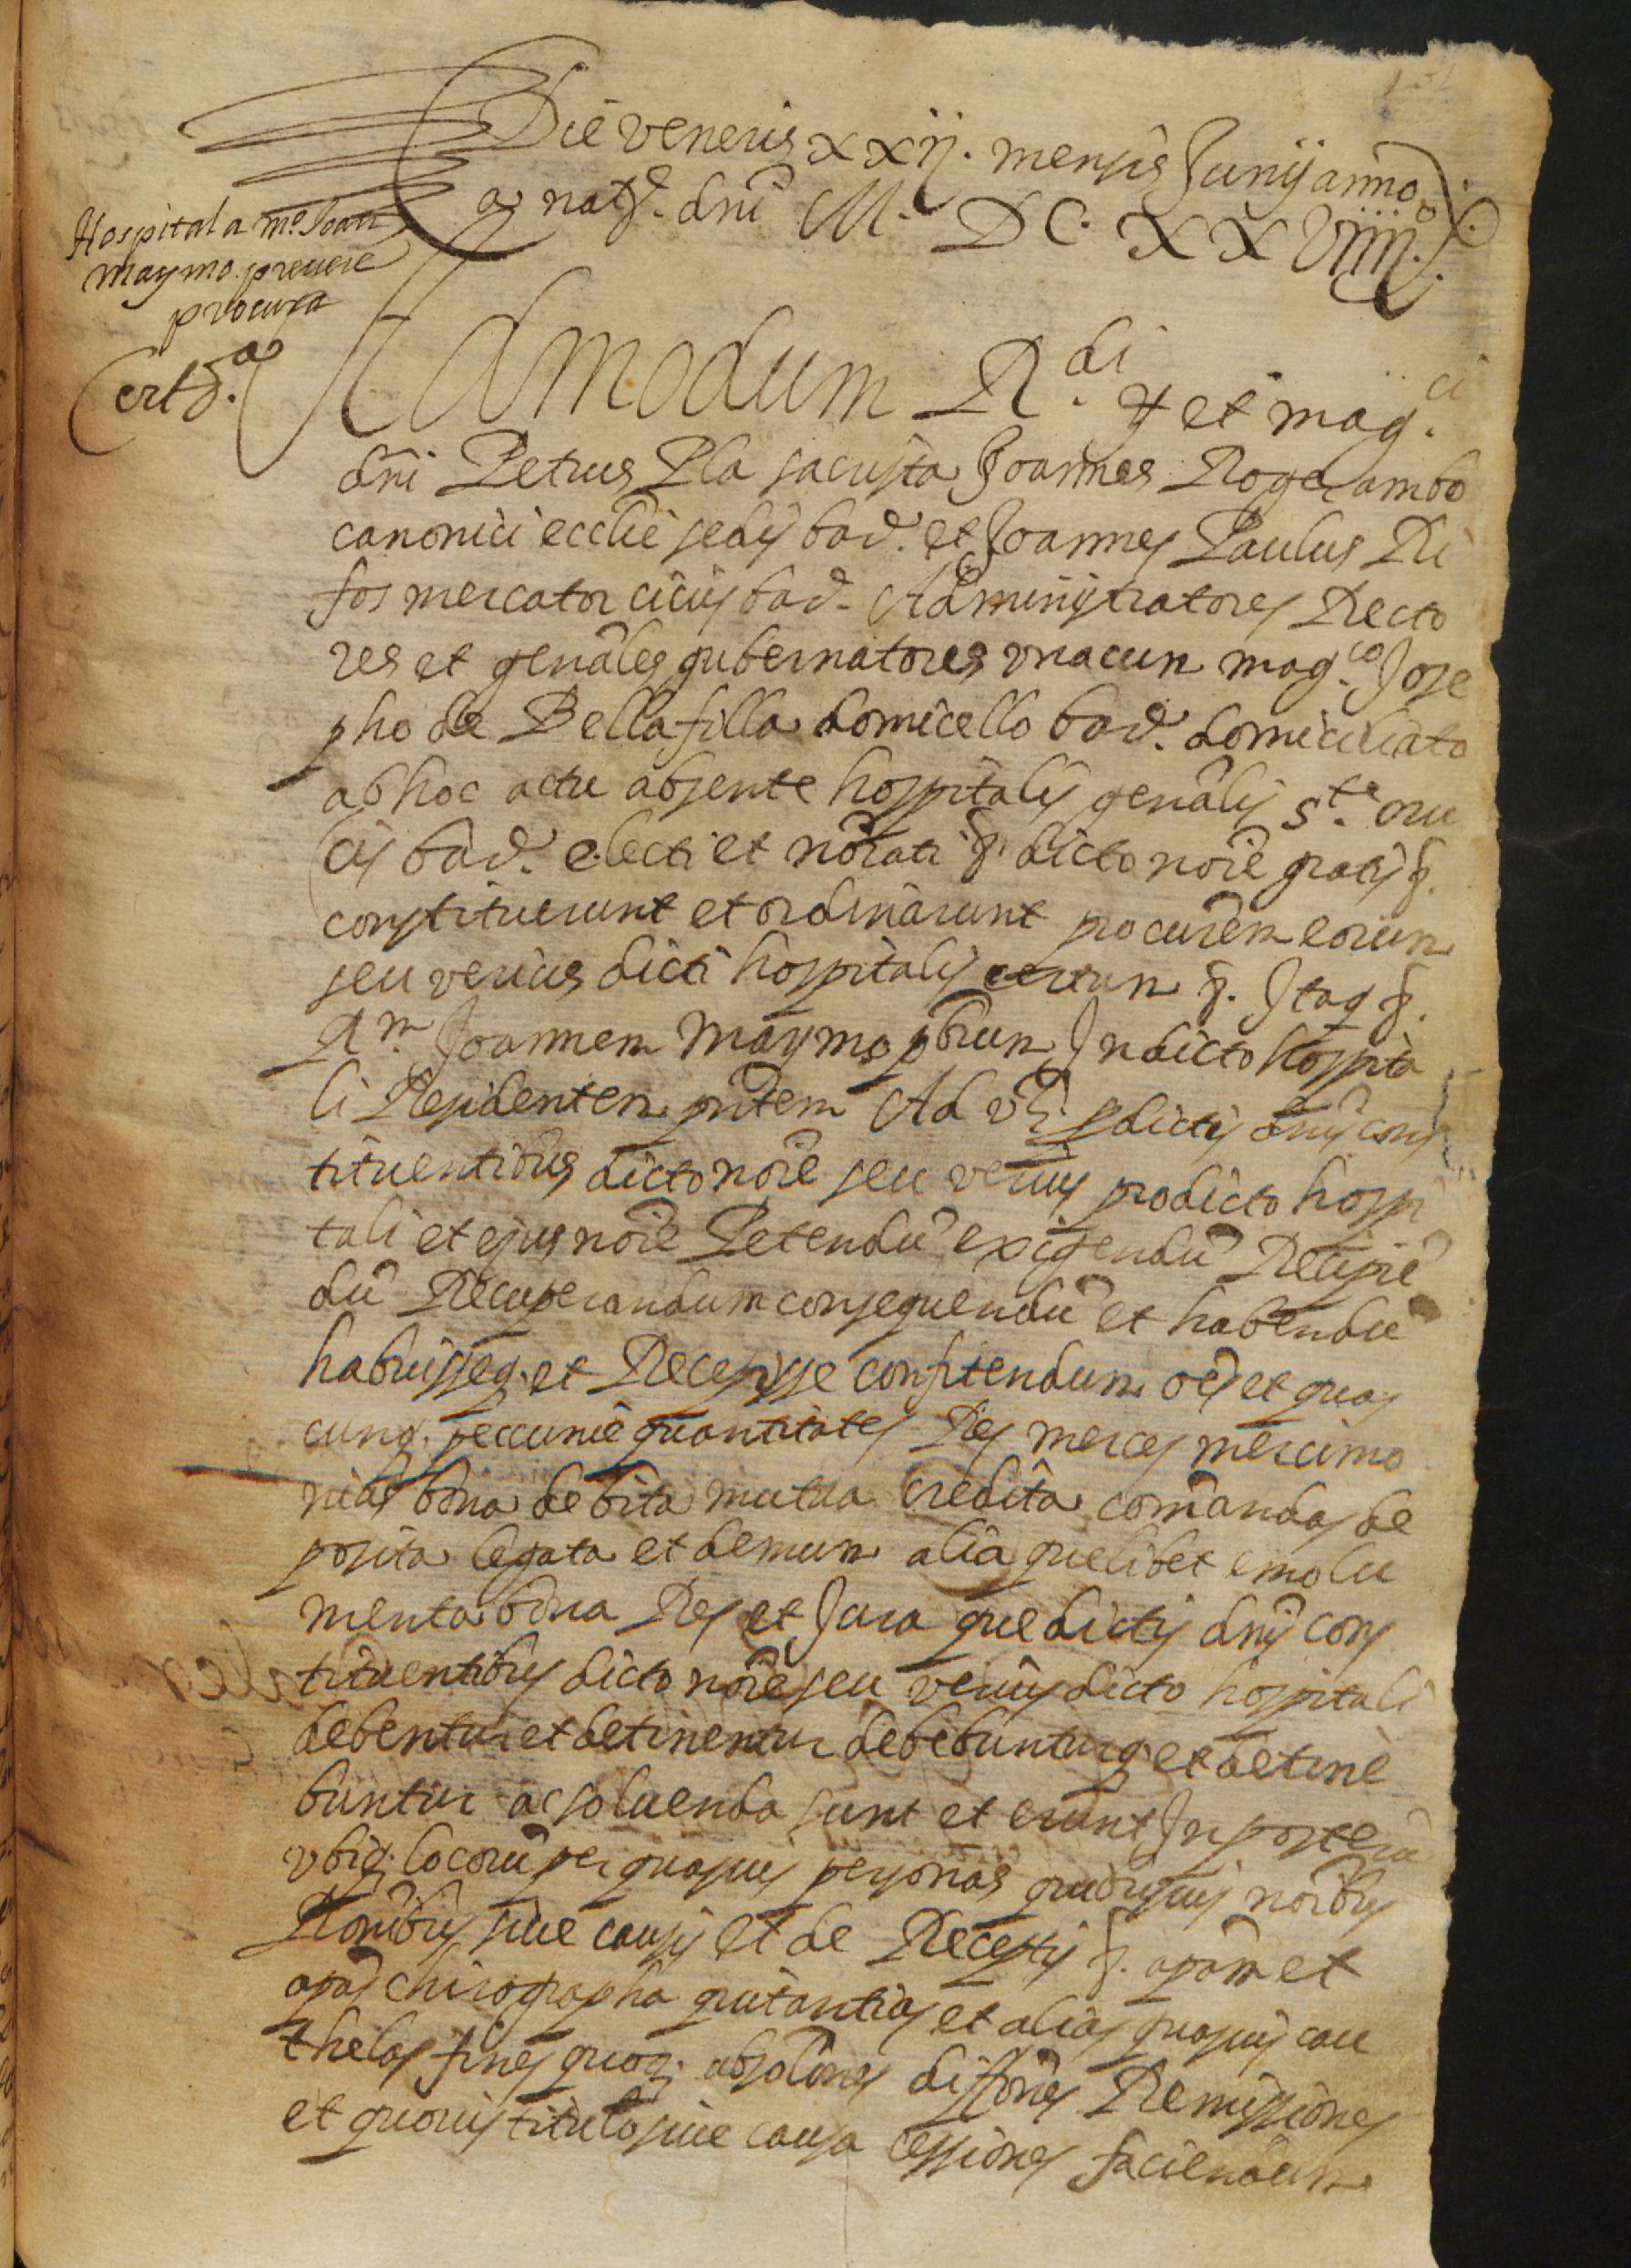 Die veneris xxij. mensis Junij anno
a natt. dni M. DC. XXVIIII.
Hospital a mo Joan
maymo preuere
procura
Certa.
Admodum R.di et mag.ci
dni Petrus Pla sacrista Joannes Roger ambo
canonici ecclie sedis bar. et Joannes Paulus Ri
fos mercator ciuis bar. Administratores Recto
res et genales gubernatores vnacum mag.co Jose
pho de Bellafilla domicello bar. domiciliato
ab hoc actu absente hospitalis genalis s.te cru
cis bar. electi et noiati &. dicto noie gratis &.
constituerunt et ordinarunt procurem eorum
seu verius dicti hospitalis certum &. Itaq &.
Rm Joannem Maymo pbrum In dicto hospita
li Residentem pntem Ad vt. pdictis dnis cons
tituentibus dicto noie seu verius pro dicto hospi
tali et ejus noie Petendu exigendu Recipie
du Recuperandum consequendu et habendu
habuisseq. et Recepisse confitendum oes et quas
cunq. peccunie quantitates Res merces mercimo
nias bona debita mutua credita comandas de
posita legata et demum alia quelibet emolu
menta bona Res et Jura que dictis dnis cons
tituentibus dicto noie seu verius dicto hospitali
debentur et detinentur debebunturq. et detine
buntur ac soluenda sunt et erunt In posteru
vbiq. locoru per quasuis personas quibusuis noibus
Ronibus siue causis Et de Receptis &. apam et
apas chirographa quitantias et alias quasuis cau
thelas fines quoq. absolones diffones Remissiones
et quouis titulo siue causa cessiones faciendum